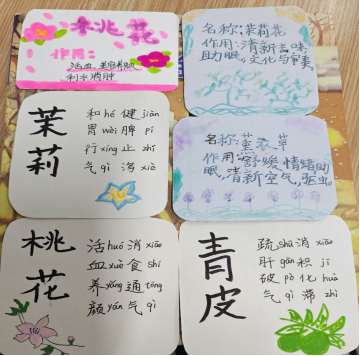 桃花
作用：
活血 美容养颜
利水消肿
名称：茉莉花
作用：清新去味
助眠，文化与审美
茉莉
和hé 健jiàn
胃wèi 脾pí
行xíng 止zhǐ
气qì 泻xiè
名称：薰衣草
作用：舒缓情绪助
眠，清新空气，驱虫
桃花
活huó 消xiāo
血xuè 食shí
养yǎng 通tōng
颜yán 气qì
青皮
疏shū 消xiāo
肝gān 积jī
破pò 化huà
气qì 滞zhì